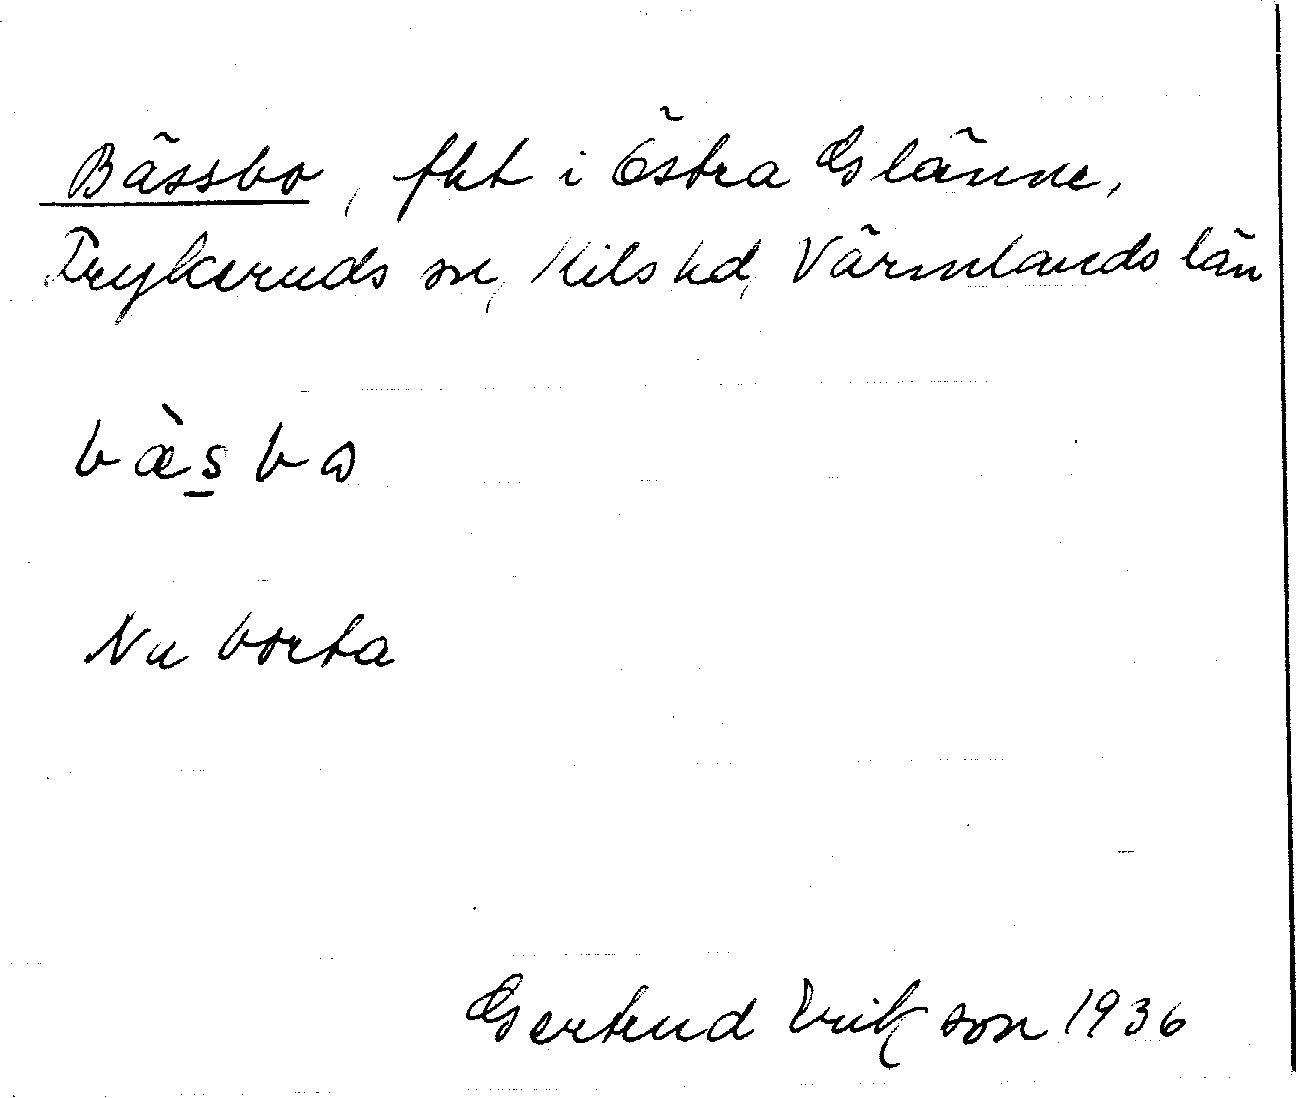 Bässbo, fht i Östra Glänne,
Frykeruds sn, Kils hd, Värmlands län
bæ̀s̠bω
Nu borta
Gertrud Erikson 1936